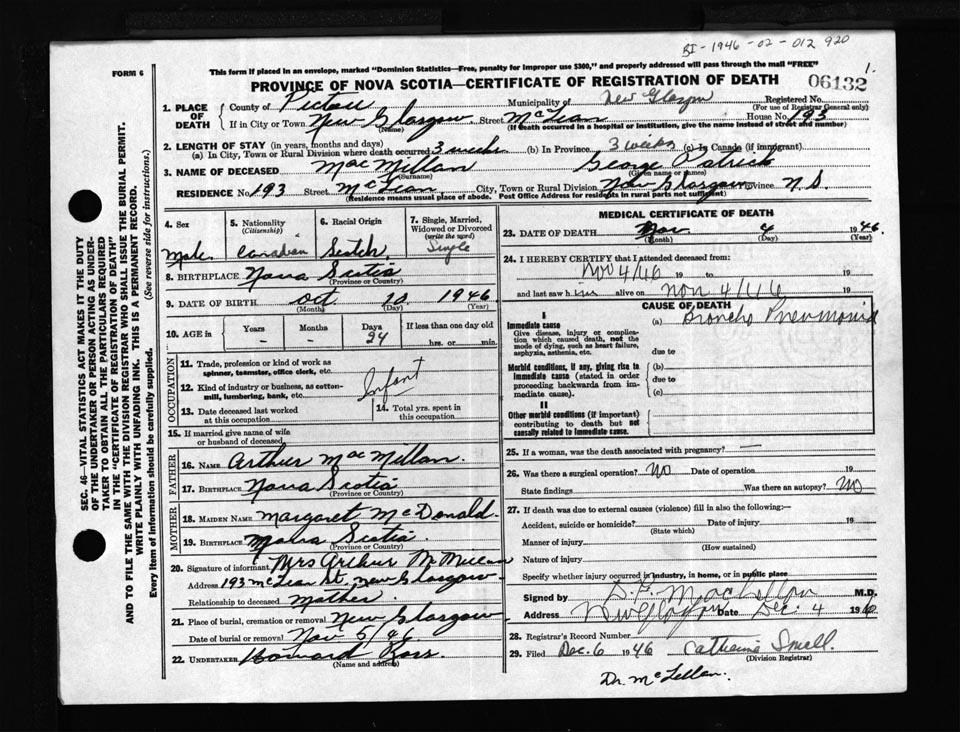 BI-1946-02-012920
1.
FORM 6
This form if placed in an envelope, marked "Dominion Statistics—Free, penalty for improper use $300," and properly addressed will pass through the mail "FREE"
PROVINCE OF NOVA SCOTIA—CERTIFICATE OF REGISTRATION OF DEATH
06132
SEC. 46—VITAL STATISTICS ACT MAKES IT THE DUTY
OF THE UNDERTAKER OR PERSON ACTING AS UNDER-
TAKER TO OBTAIN ALL THE PARTICULARS REQUIRED
IN THE "CERTIFICATE OF REGISTRATION OF DEATH"
AND TO FILE THE SAME WITH THE DIVISION REGISTRAR WHO SHALL ISSUE THE BURIAL PERMIT.
WRITE PLAINLY WITH UNFADING INK. THIS IS A PERMANENT RECORD.
Every item of information should be carefully supplied. (See reverse side for instructions.)
1. PLACE OF DEATH
County of Pictou Municipality of New Glasgow Registered No.
(For use of Registrar General only)
If in City or Town New Glasgow Street McLean House No. 193
(Name) (If death occurred in a hospital or institution, give the name instead of street and number)
2. LENGTH OF STAY (in years, months and days)
(a) In City, Town or Rural Division where death occurred 3 weeks (b) In Province 3 weeks (c) In Canada (if immigrant)
3. NAME OF DECEASED MacMillan George Patrick
(Surname) (Given name or names)
RESIDENCE No. 193 Street McLean City, Town or Rural Division New Glasgow Province N.S.
(Residence means usual place of abode. Post Office Address for residents in rural parts not sufficient)
4. Sex
Male
5. Nationality
(Citizenship)
Canadian
6. Racial Origin
Scotch
7. Single, Married,
Widowed or Divorced
(write the word)
Single
8. BIRTHPLACE Nova Scotia
(Province or Country)
9. DATE OF BIRTH Oct 10 1946
(Month) (Day) (Year)
10. AGE in
Years Months Days If less than one day
- - 24 hrs. or min.
OCCUPATION
11. Trade, profession or kind of work as
spinner, teamster, office clerk, etc.
12. Kind of industry or business, as cotton-
mill, lumbering, bank, etc.
Infant
13. Date deceased last worked
at this occupation
14. Total yrs. spent in
this occupation
15. If married give name of wife
or husband of deceased
FATHER
16. NAME Arthur MacMillan.
17. BIRTHPLACE Nova Scotia
(Province or Country)
MOTHER
18. MAIDEN NAME Margaret McDonald.
19. BIRTHPLACE Nova Scotia.
(Province or Country)
20. Signature of informant Mrs Arthur McMillan
Address 193 McLean St. New Glasgow
Relationship to deceased Mother
21. Place of burial, cremation or removal New Glasgow
Date of burial or removal Nov 5/46
22. UNDERTAKER Howard Ross.
(Name and address)
MEDICAL CERTIFICATE OF DEATH
23. DATE OF DEATH Nov 4 1946.
(Month) (Day) (Year)
24. I HEREBY CERTIFY that I attended deceased from:
Nov 4/46 19 to 19
and last saw him alive on Nov 4/46 19
CAUSE OF DEATH
I
Immediate cause
Give disease, injury or complica-
tion which caused death, not the
mode of dying, such as heart failure,
asphyxia, asthenia, etc.
(a) Broncho Pneumonia
due to
Morbid conditions, if any, giving rise to
immediate cause (stated in order
proceeding backwards from im-
mediate cause).
(b)
due to
(c)
II
Other morbid conditions (if important)
contributing to death but not
causally related to immediate cause.
25. If a woman, was the death associated with pregnancy? —
26. Was there a surgical operation? No Date of operation 19
State findings Was there an autopsy? No
27. If death was due to external causes (violence) fill in also the following:—
Accident, suicide or homicide? Date of injury 19
(State which)
Manner of injury
(How sustained)
Nature of injury
Specify whether injury occurred in industry, in home, or in public place
Signed by MacLellan M.D.
Address New Glasgow Date Dec. 4 19
28. Registrar's Record Number
29. Filed Dec. 6 1946 Catherine Smell.
(Division Registrar)
Dr. McLellan.